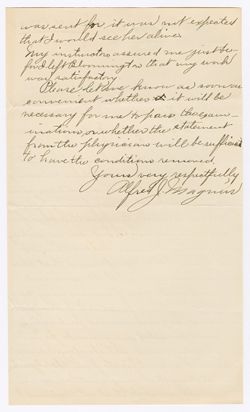 was sent for it was not expected
that I would see her alive.
My instructors assured me just be-
fore I left Bloomington that my work
was satisfactory.
Please let me know as soon as
convenient whether it will be
necessary for me to pass the exam-
inations, or whether the statement
from the physician will be sufficient
to have the conditions removed.
Yours very respectfully
Alfred J. Magnus